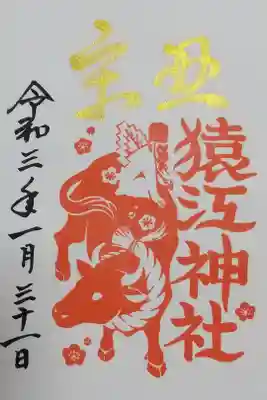 辛丑
猿江神社
令和三年一月三十一日